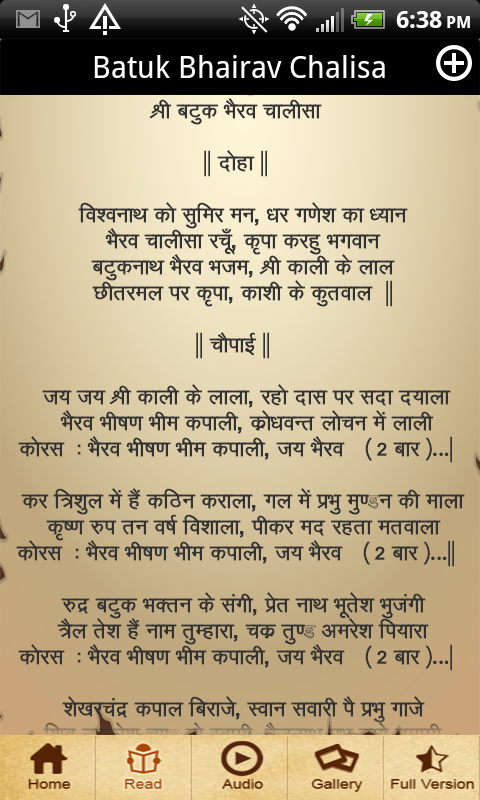 6:38 PM
Batuk Bhairav Chalisa
श्री बटुक भैरव चालीसा
|| दोहा ||
विश्वनाथ को सुमिर मन, धर गणेश का ध्यान
भैरव चालीसा रचूँ, कृपा करहु भगवान
बटुकनाथ भैरव भजम, श्री काली के लाल
छीतरमल पर कृपा, काशी के कुतवाल ||
|| चौपाई ||
जय जय श्री काली के लाला, रहो दास पर सदा दयाला
भैरव भीषण भीम कपाली, क्रोधवन्त लोचन में लाली
कोरस : भैरव भीषण भीम कपाली, जय भैरव ( 2 बार )...|
कर त्रिशुल में हैं कठिन कराला, गल में प्रभु मुण्डन की माला
कृष्ण रुप तन वर्ष विशाला, पीकर मद रहता मतवाला
कोरस : भैरव भीषण भीम कपाली, जय भैरव ( 2 बार )...||
रुद्र बटुक भक्तन के संगी, प्रेत नाथ भूतेश भुजंगी
त्रैल तेश हैं नाम तुम्हारा, चक्र तुण्ड अमरेश पियारा
कोरस : भैरव भीषण भीम कपाली, जय भैरव ( 2 बार )...|
शेखरचंद्र कपाल बिराजे, स्वान सवारी पै प्रभु गाजे
Home
Read
Audio
Gallery
Full Version